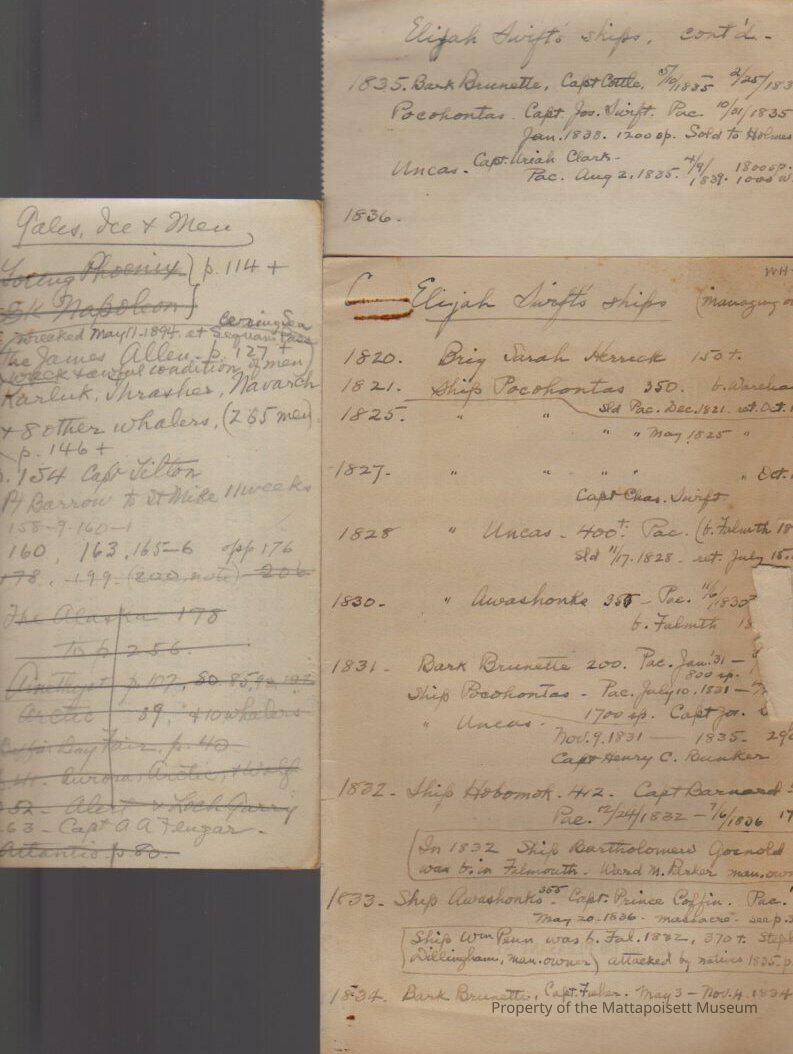 Elijah Swift's ships, cont'd-
1835. Bark Brunette, Capt Cottle, 5/10/1835 2/25/183
Pocohontas. Capt. Jos. Swift. Pac. 10/31/1835
Jan. 1838. 1200 sp. Sold to Holmes
Uncas. Capt. Uriah Clark-
Pac. Aug 2, 1835. 4/9/1839. 1800 sp. 1000 w
1836.
Gales, Ice & Men
Young Phoenix } p. 114 +
Bk Napoleon }
wrecked May 11-1894. at Seguam Pass
Bering Sea
The James Allen. p. 127 +
(wreck & awful condition of men)
Karluk, Thrasher, Navarch
& 8 other whalers, (265 men).
p. 146 +
p. 154 Capt Tilton
Pt Barrow to St Mike 11 weeks
158-9-160-1
160, 163, 165-6 opp 176
178, 199- (200, note) 206
The Alaska 178
To p 256.
Amethyst p 107, 80. 85,
Arctic 39, & 10 whalers
Bay Fair, p. 40
Aurora, Arctic, & Wolf
52- Alert & Loch Garry
63- Capt A A Fengar-
Atlantis p 80.
WH
Elijah Swift's ships (managing o
1820. Brig Sarah Herrick 150 t.
1821. Ship Pocohontas 350. b. Wareha
Sld Pac. Dec. 1821. ret. Oct. 1
1825. " "
" " May 1825 "
1827. " " " " " Oct.
Capt Chas. Swift
1828 " Uncas - 400 t. Pac. (b. Falmth 18
Sld 11/17. 1828 - ret. July 15.
1830- " Awashonks 355 - Pac. 11/6/1830
b. Falmth 18
1831- Bark Brunette 200. Pac. Jan. '31 -
800 sp.
Ship Pocohontas - Pac. July 10. 1831 - 7
1700 sp. Capt Jos.
" Uncas-
Nov. 9. 1831 — 1835.
Capt Henry C. Bunker
1832- Ship Hobomok. 412. Capt Barnard
Pac. 12/24/1832 - 7/6/1836 17
In 1832 Ship Bartholomew Gosnold
was b. in Falmouth. Ward M. Parker man. own
1833- Ship Awashonks 355 Capt. Prince Coffin. Pac.
May 20. 1836- massacre- see p. 3
Ship Wm Penn was b. Fal. 1832, 370 t. Step
Dillingham, man. owner) attacked by natives 1835. p.
1834. Bark Brunette, Capt. Fisher. May 3 - Nov. 4. 1834
Property of the Mattapoisett Museum